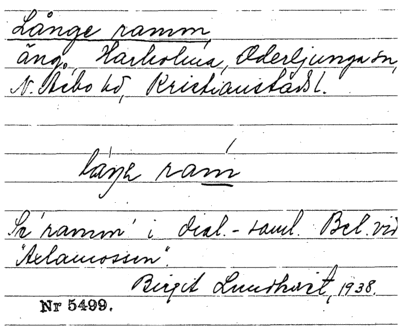 Långe ramm
äng. Harholma, Oderljunga sn,
N. Åsbo hd, Kristianstads l.
låŋɛ ram
Se 'ramm' i dial.-saml. Bel. vid
"Axlamossen".
Birgit Lundkvist, 1938.
Nr 5499.